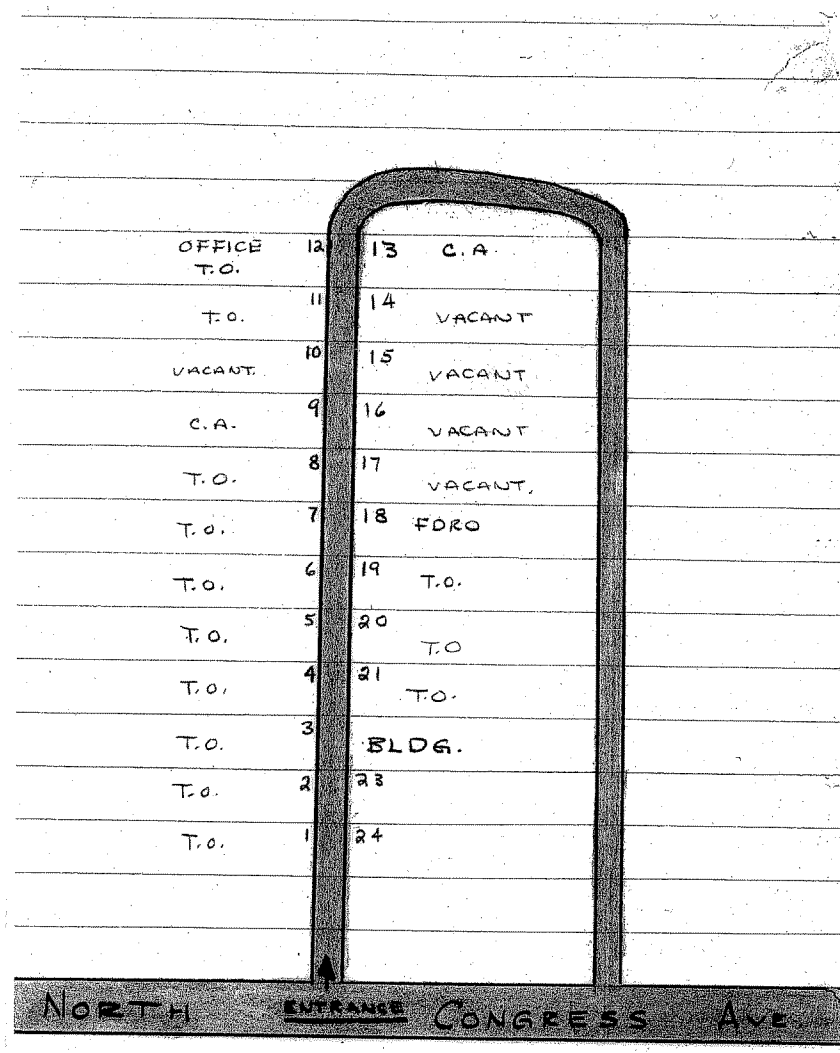 OFFICE 12 13 C.A.
T.O.
T.O. 11 14 VACANT
VACANT. 10 15 VACANT
C.A. 9 16 VACANT
T.O. 8 17 VACANT.
T.O. 7 18 FDRO
T.O. 6 19 T.O.
T.O. 5 20 T.O
T.O. 4 21 T.O.
T.O. 3 BLDG.
T.O. 2 23
T.O. 1 24
NORTH ENTRANCE CONGRESS AVE.